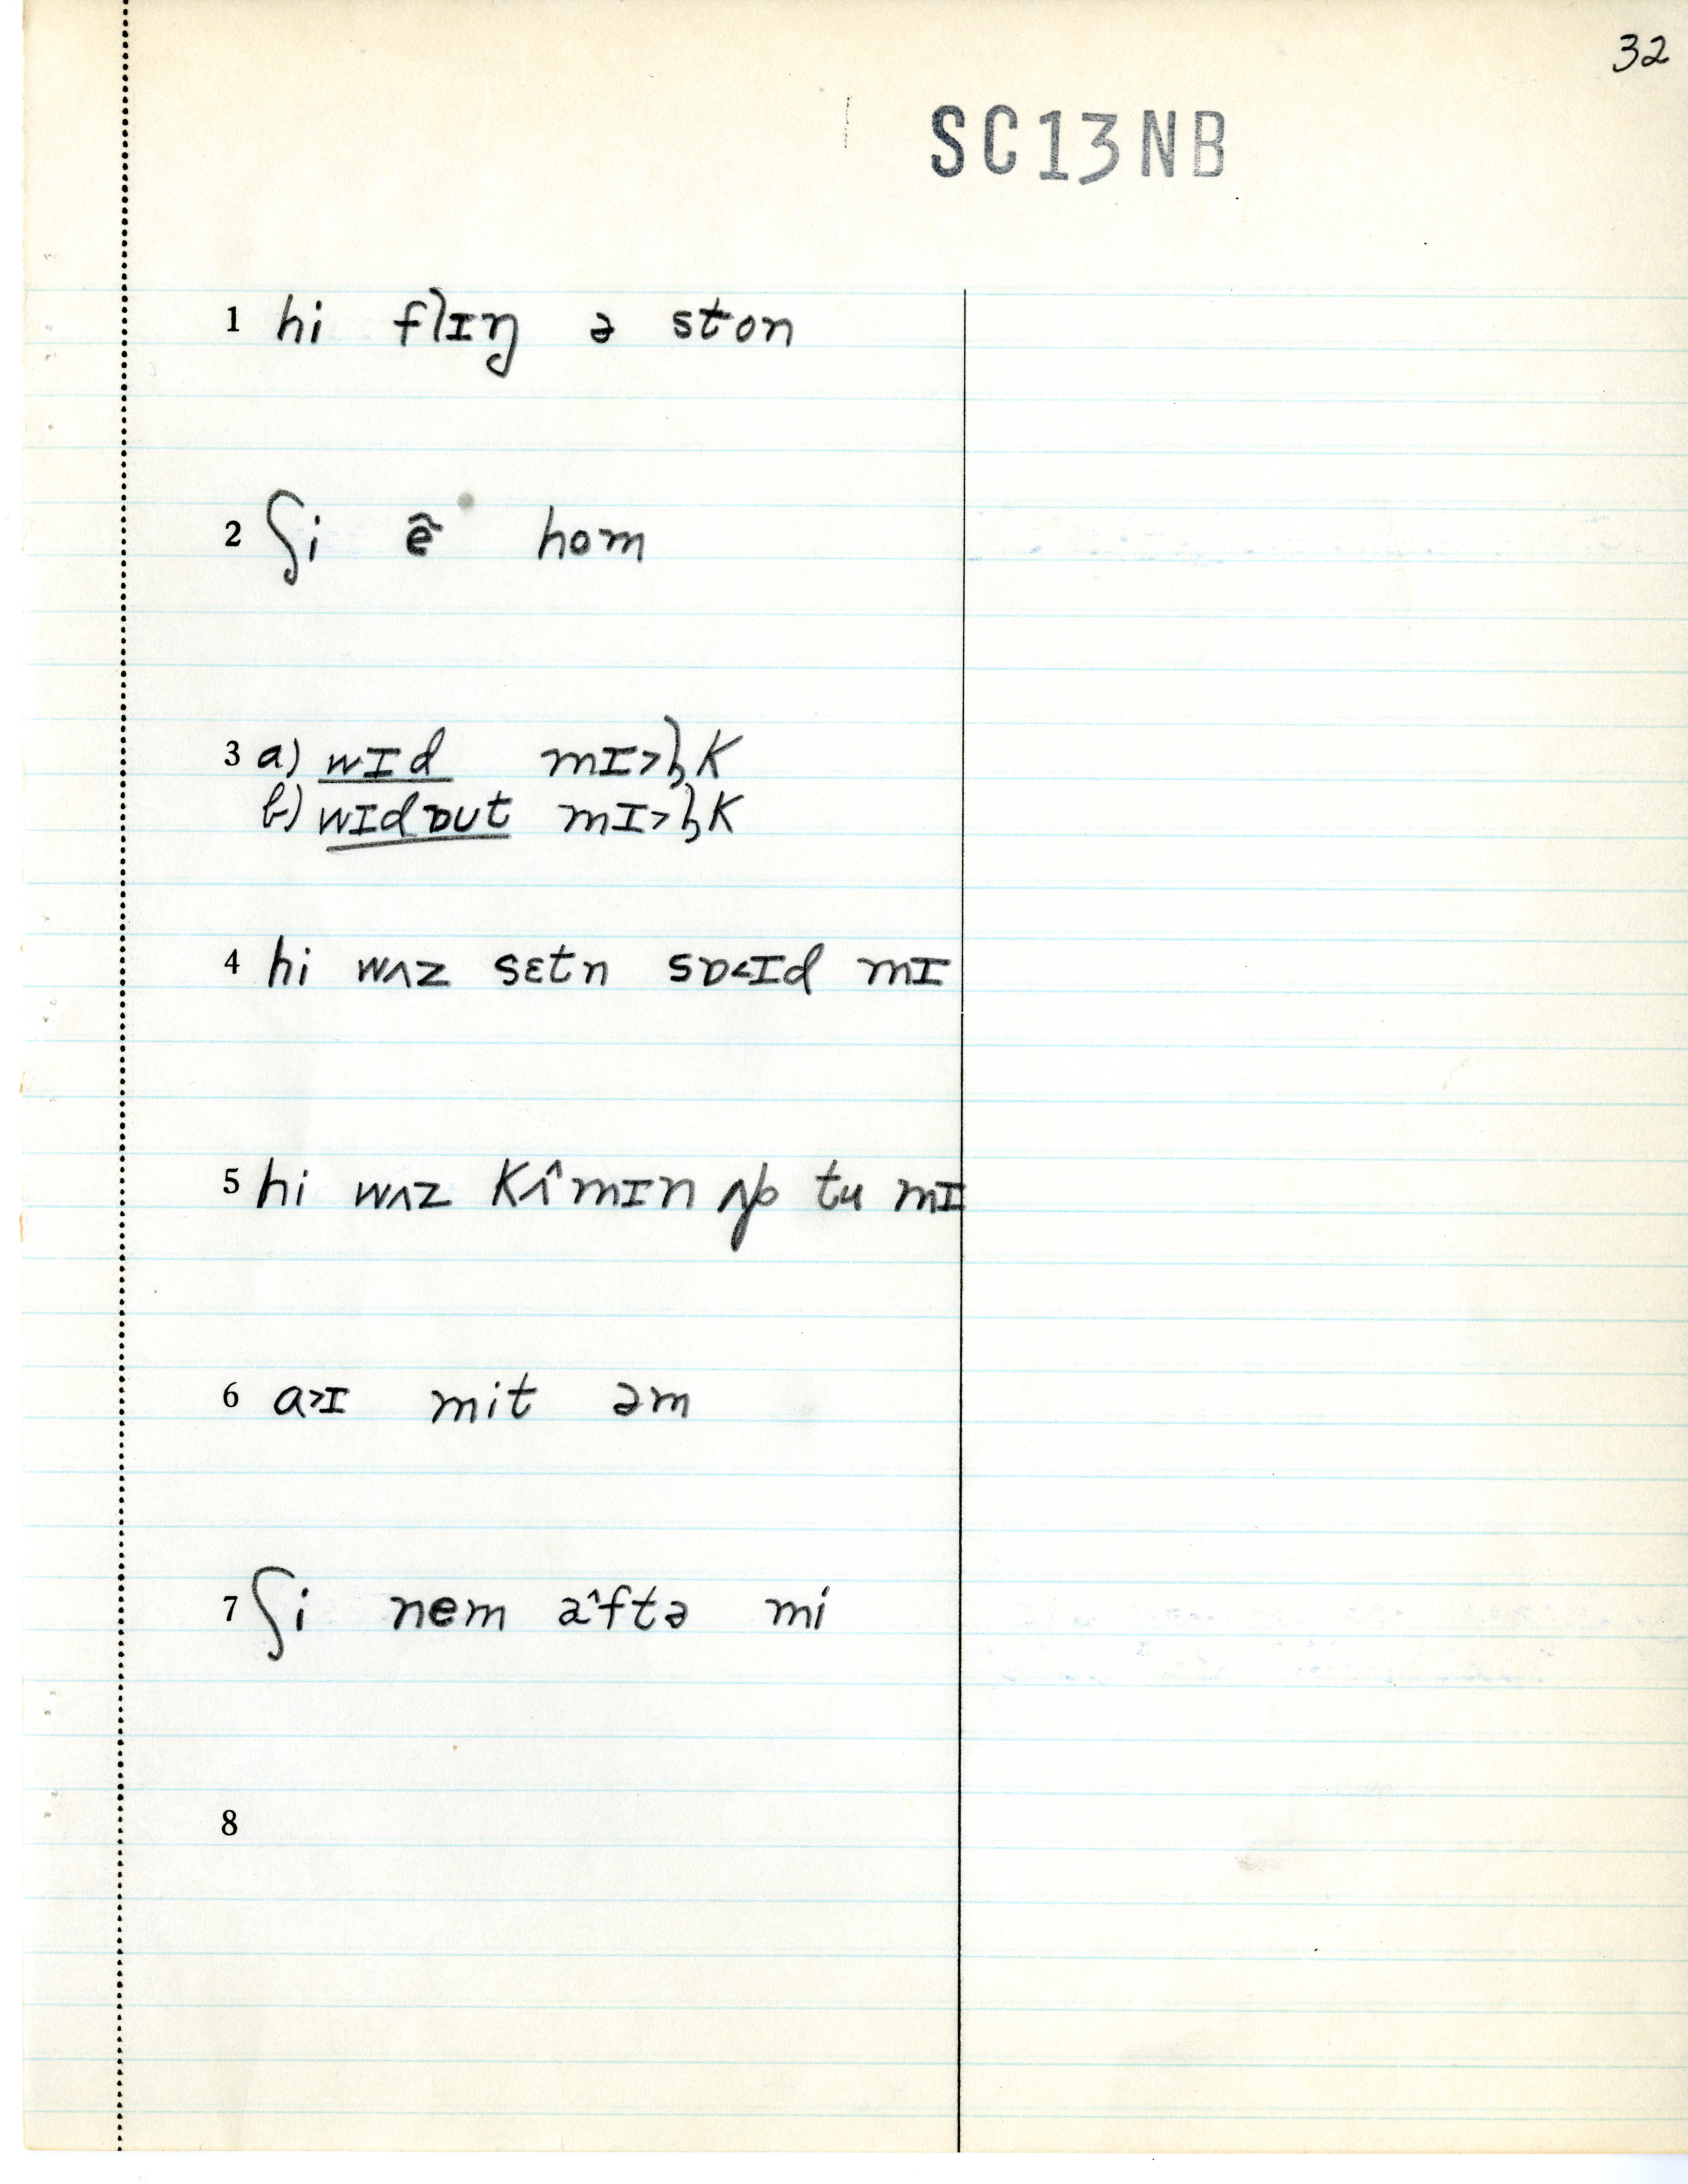 32
SC13NB
1 hi flɪŋ ə ston
2 ʃi ẽ hom
3 a) wɪd mɪ>ɫK
b) wɪdɒut mɪ>ɫK
4 hi wʌz sɛtn sɒ<ɪd mɪ
5 hi wʌz Kʌ̂mɪn ʌp tu mɪ
6 a>ɪ mit əm
7 ʃi nem a^ftə mi
8